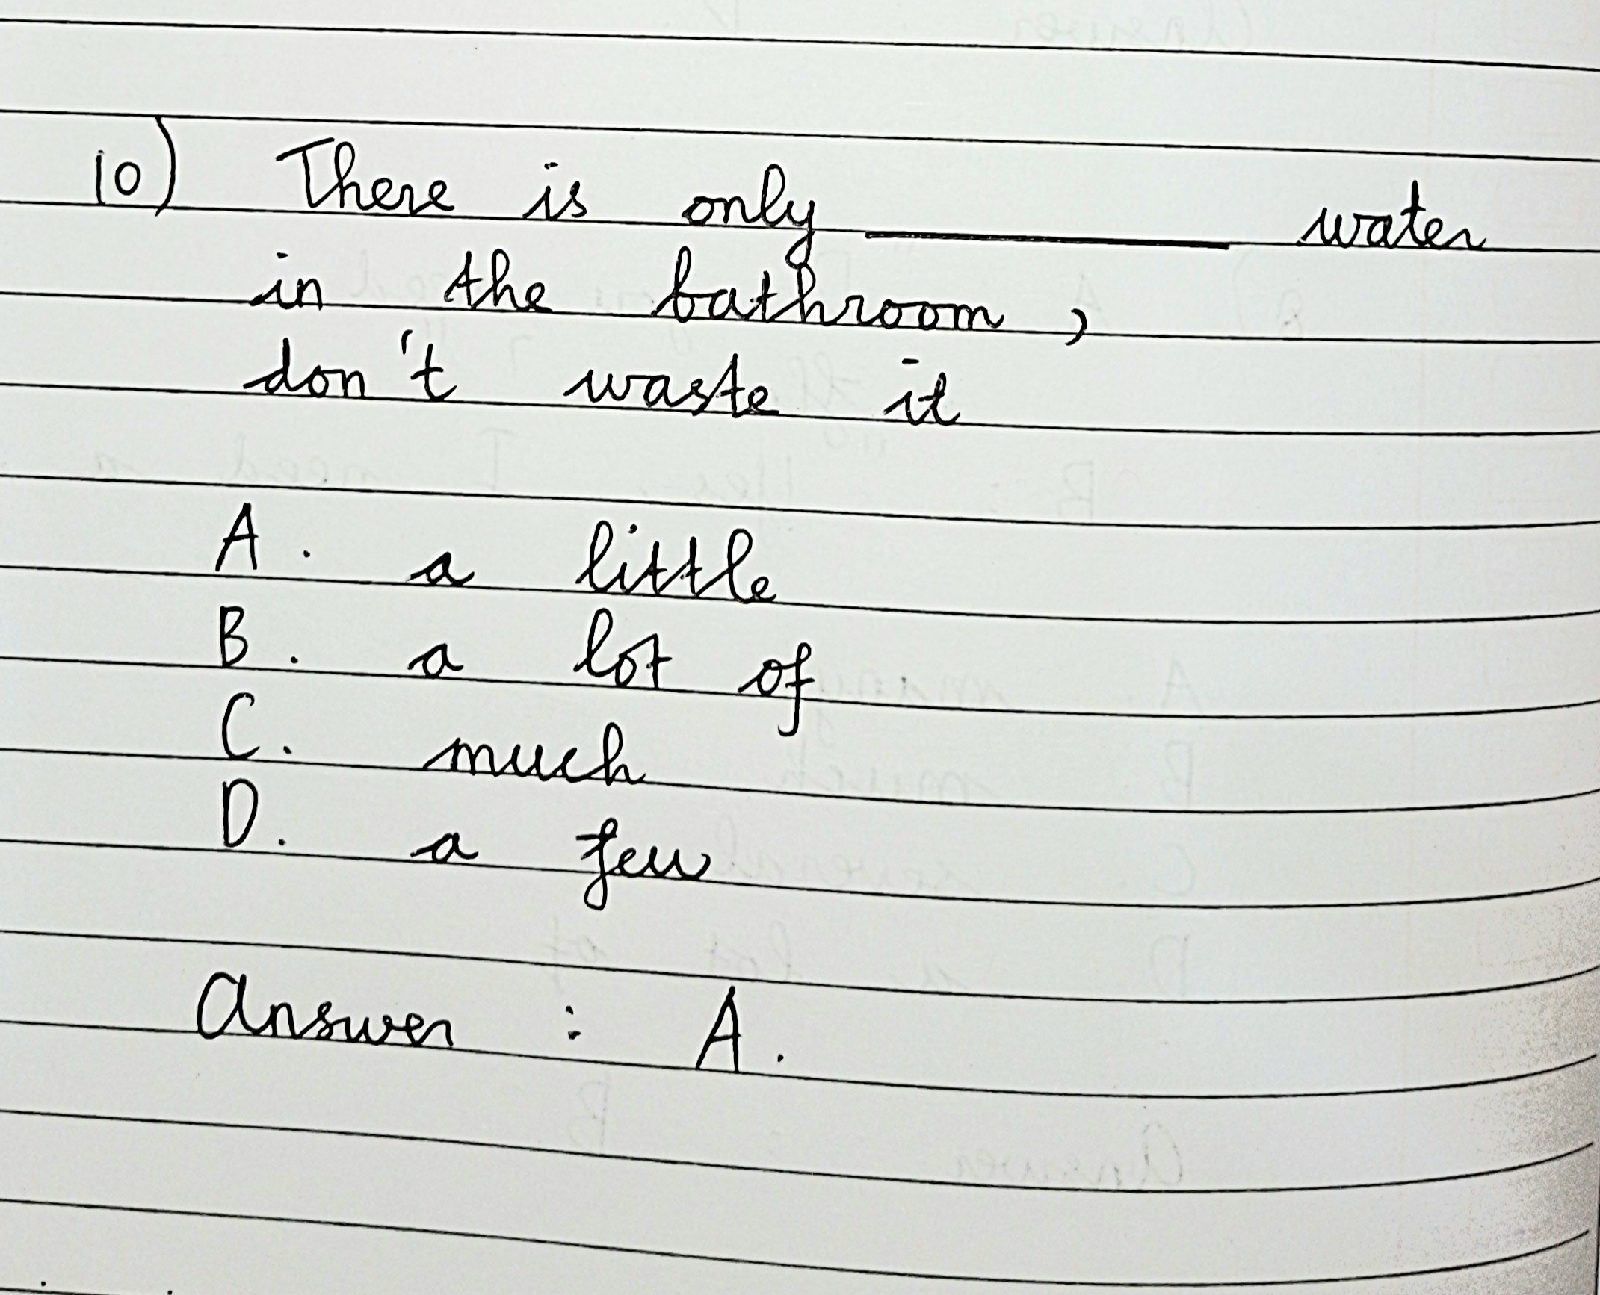 10) There is only ________ water
in the bathroom,
don't waste it
A. a little
B. a lot of
C. much
D. a few
Answer : A.